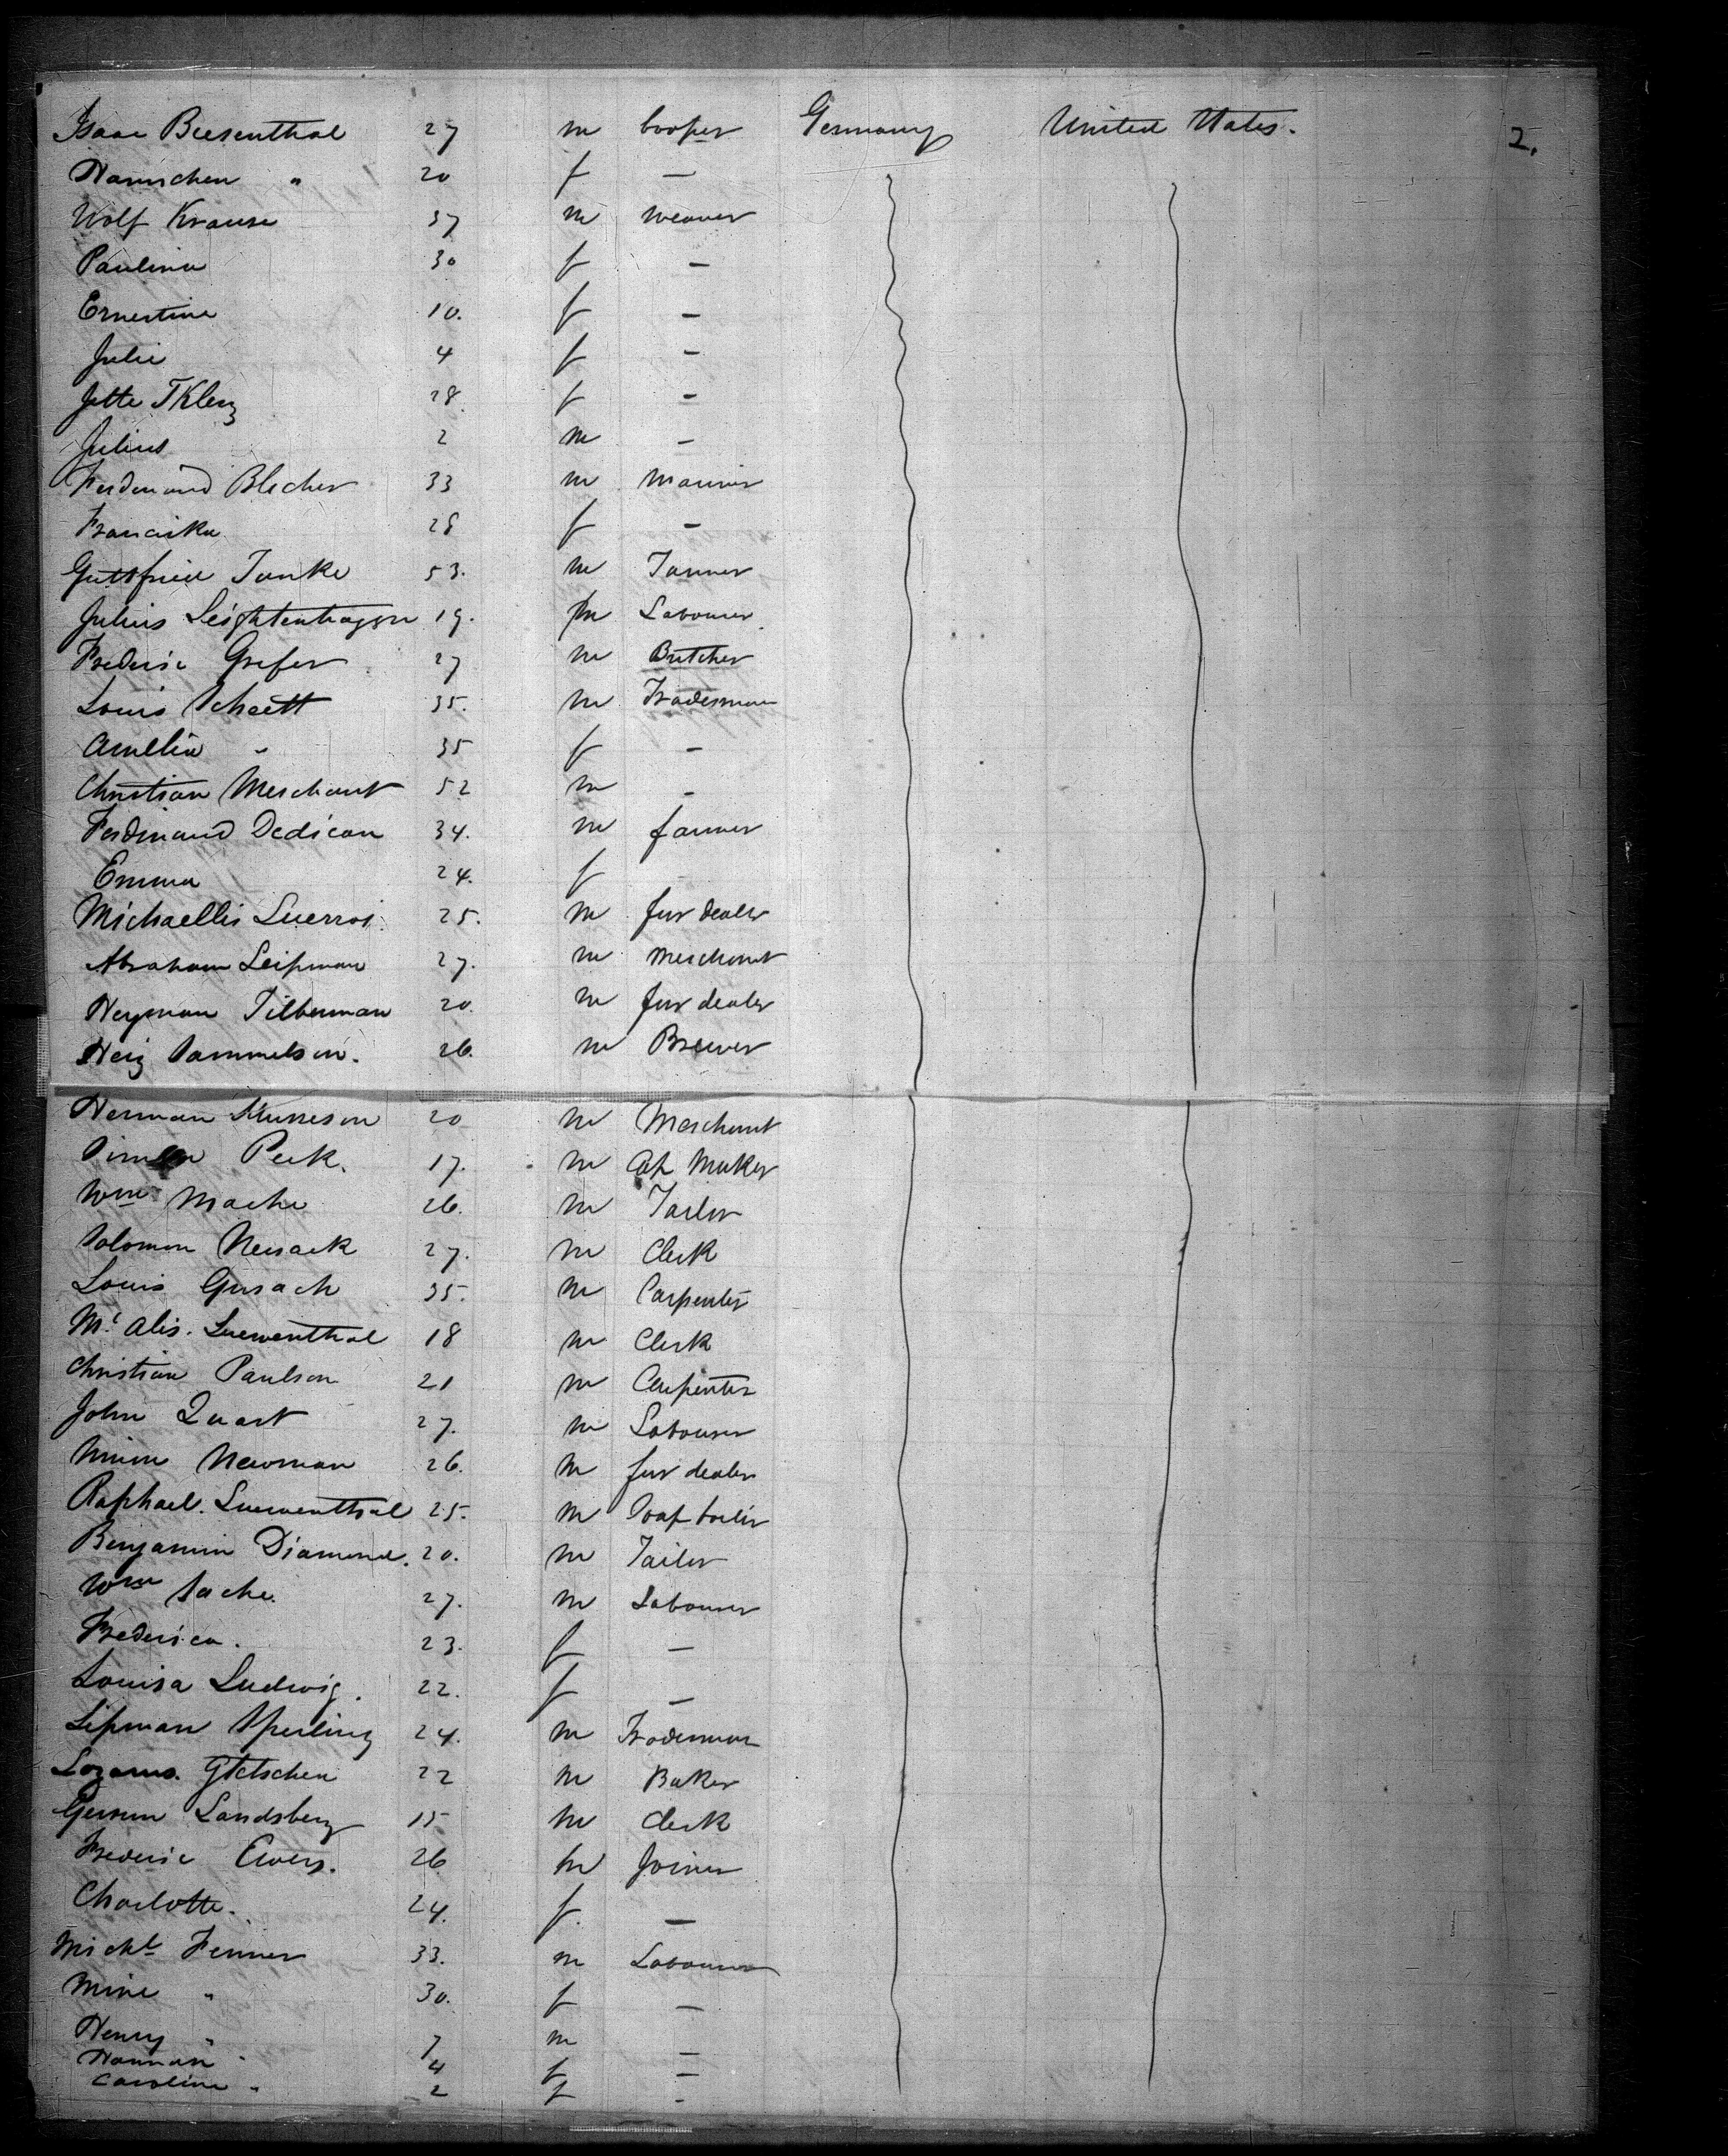 Isaac Biesenthal 27 m Cooper Germany United States. 2.
Hannchen " 20 f —
Wolf Krause 37 m weaver
Paulina 30 f —
Ernestine 10. f —
Julie 4 f —
Jette 28 f —
Julius 2 m —
Ferdinand Blecher 33 m
Franciska 28 f —
Gottfried Tanke 53. m Tanner
Julius 19. m Labourer
Frederic Grefer 27 m Butcher
Louis Schaett 35. m Tradesman
Amelia " 35 f —
Christian Merchant 52 m —
Ferdinand Dedican 34. m farmer
Emma 24. f
Michaellis 25. m fur dealer
Abraham Leipman 27. m Merchant
Heyman Tilberman 20. m fur dealer
Herz Sammelson. 26. m Brewer
Herman 20 m Merchant
Peck. 17. m Cap Maker
Wm Mache 26. m Tailor
Solomon Nessack 27. m Clerk
Louis Gusach 35. m Carpenter
Luewenthal 18 m Clerk
Christian Paulson 21 m Carpenter
John Quast 27. m Labourer
Newman 26. m fur dealer
Raphael. Luewenthal 25. m Soap boiler
Benjamin Diamond. 20. m Tailor
Wm Sache. 27. m Labourer
Frederica. 23. f —
Louisa Ludwig. 22. f —
Lipman Sperling 24. m Tradesman
Lazarus. Gletschen 22 m Baker
Landsberg 15 m Clerk
Frederic Ewers. 26 m Joiner
Charlotte. 24. f. —
Michl Fenner 33. m Labourer
Mine " 30. f —
Henry " 7 m —
Hannah " 4 f —
Caroline " 2 f —